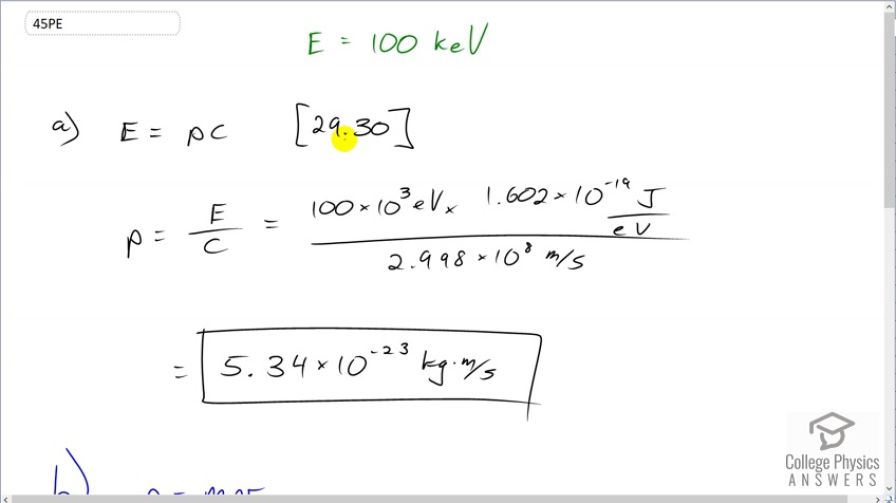 45PE
E = 100 keV
a) E = pc [29.30]
p = E/c = 100×10³ eV × 1.602×10⁻¹⁹ J/eV / 2.998×10⁸ m/s
= 5.34×10⁻²³ kg·m/s
b)
College Physics
ANSWERS